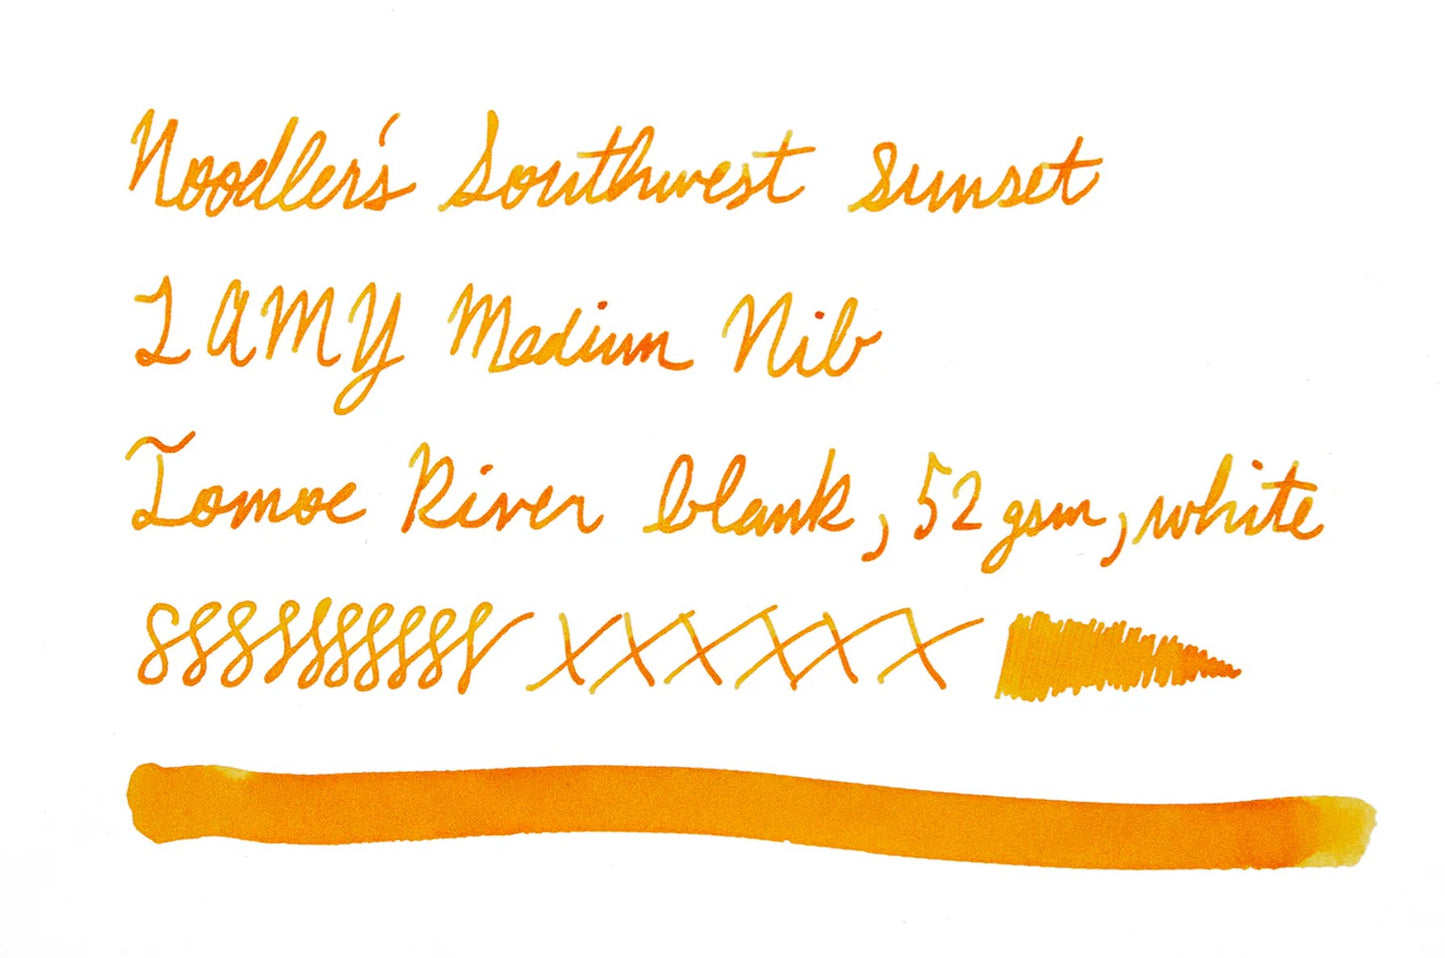 Noodler's Southwest Sunset
LAMY Medium Nib
Tomoe River blank, 52 gsm, white